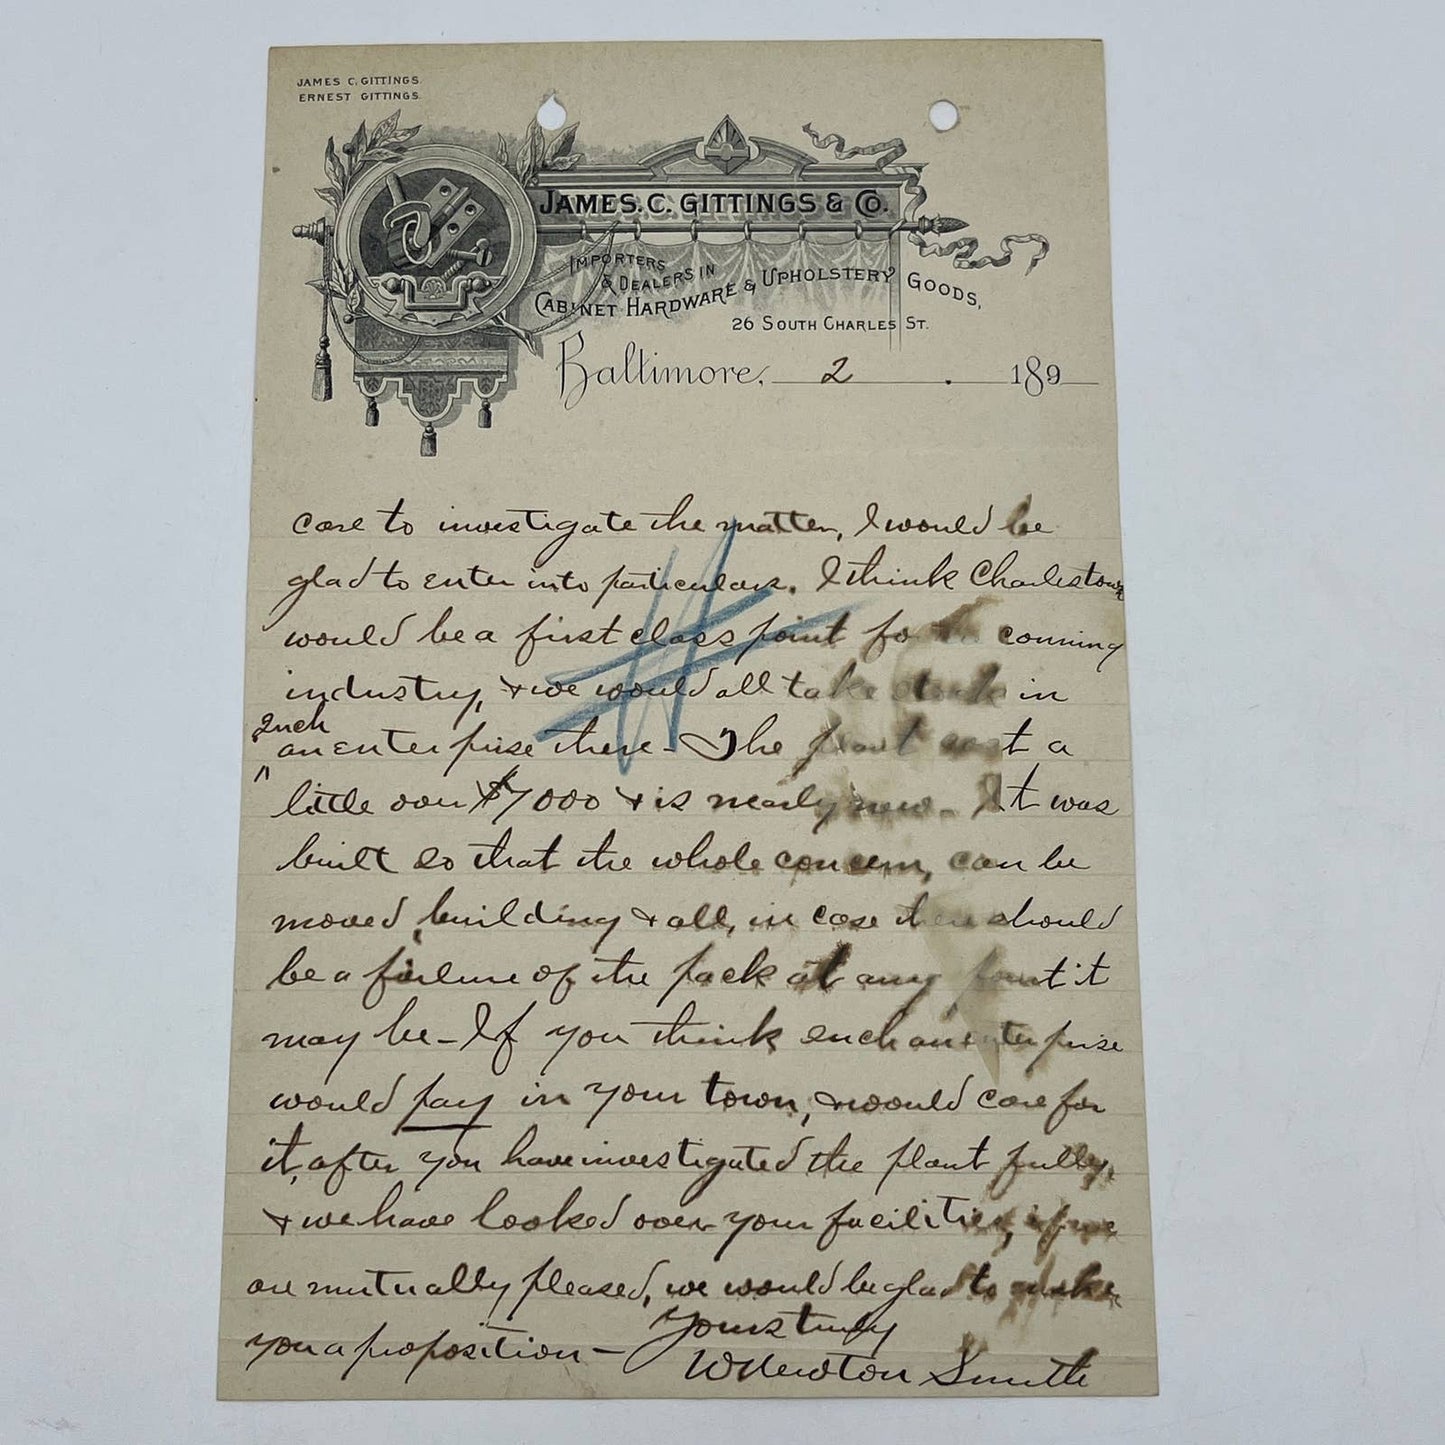 JAMES C. GITTINGS.
ERNEST GITTINGS.
JAMES. C. GITTINGS & CO.
IMPORTERS
& DEALERS IN
CABINET HARDWARE & UPHOLSTERY GOODS,
26 SOUTH CHARLES ST.
Baltimore, 2 . 189
care to investigate the matter, I would be
glad to enter into particulars. I think Charlestown
would be a first class point for the canning
industry, & we would all take stock in
such
an enterprise there - The plant cost a
little over $7000 & is nearly new. It was
built so that the whole concern, can be
moved, building & all, in case there should
be a failure of the pack at any point it
may be - If you think such an enterprise
would pay in your town, & would care for
it, after you have investigated the plant fully,
& we have looked over your facilities, if we
are mutually pleased, we would be glad to make
you a proposition -
Yours truly
W Newton Smith